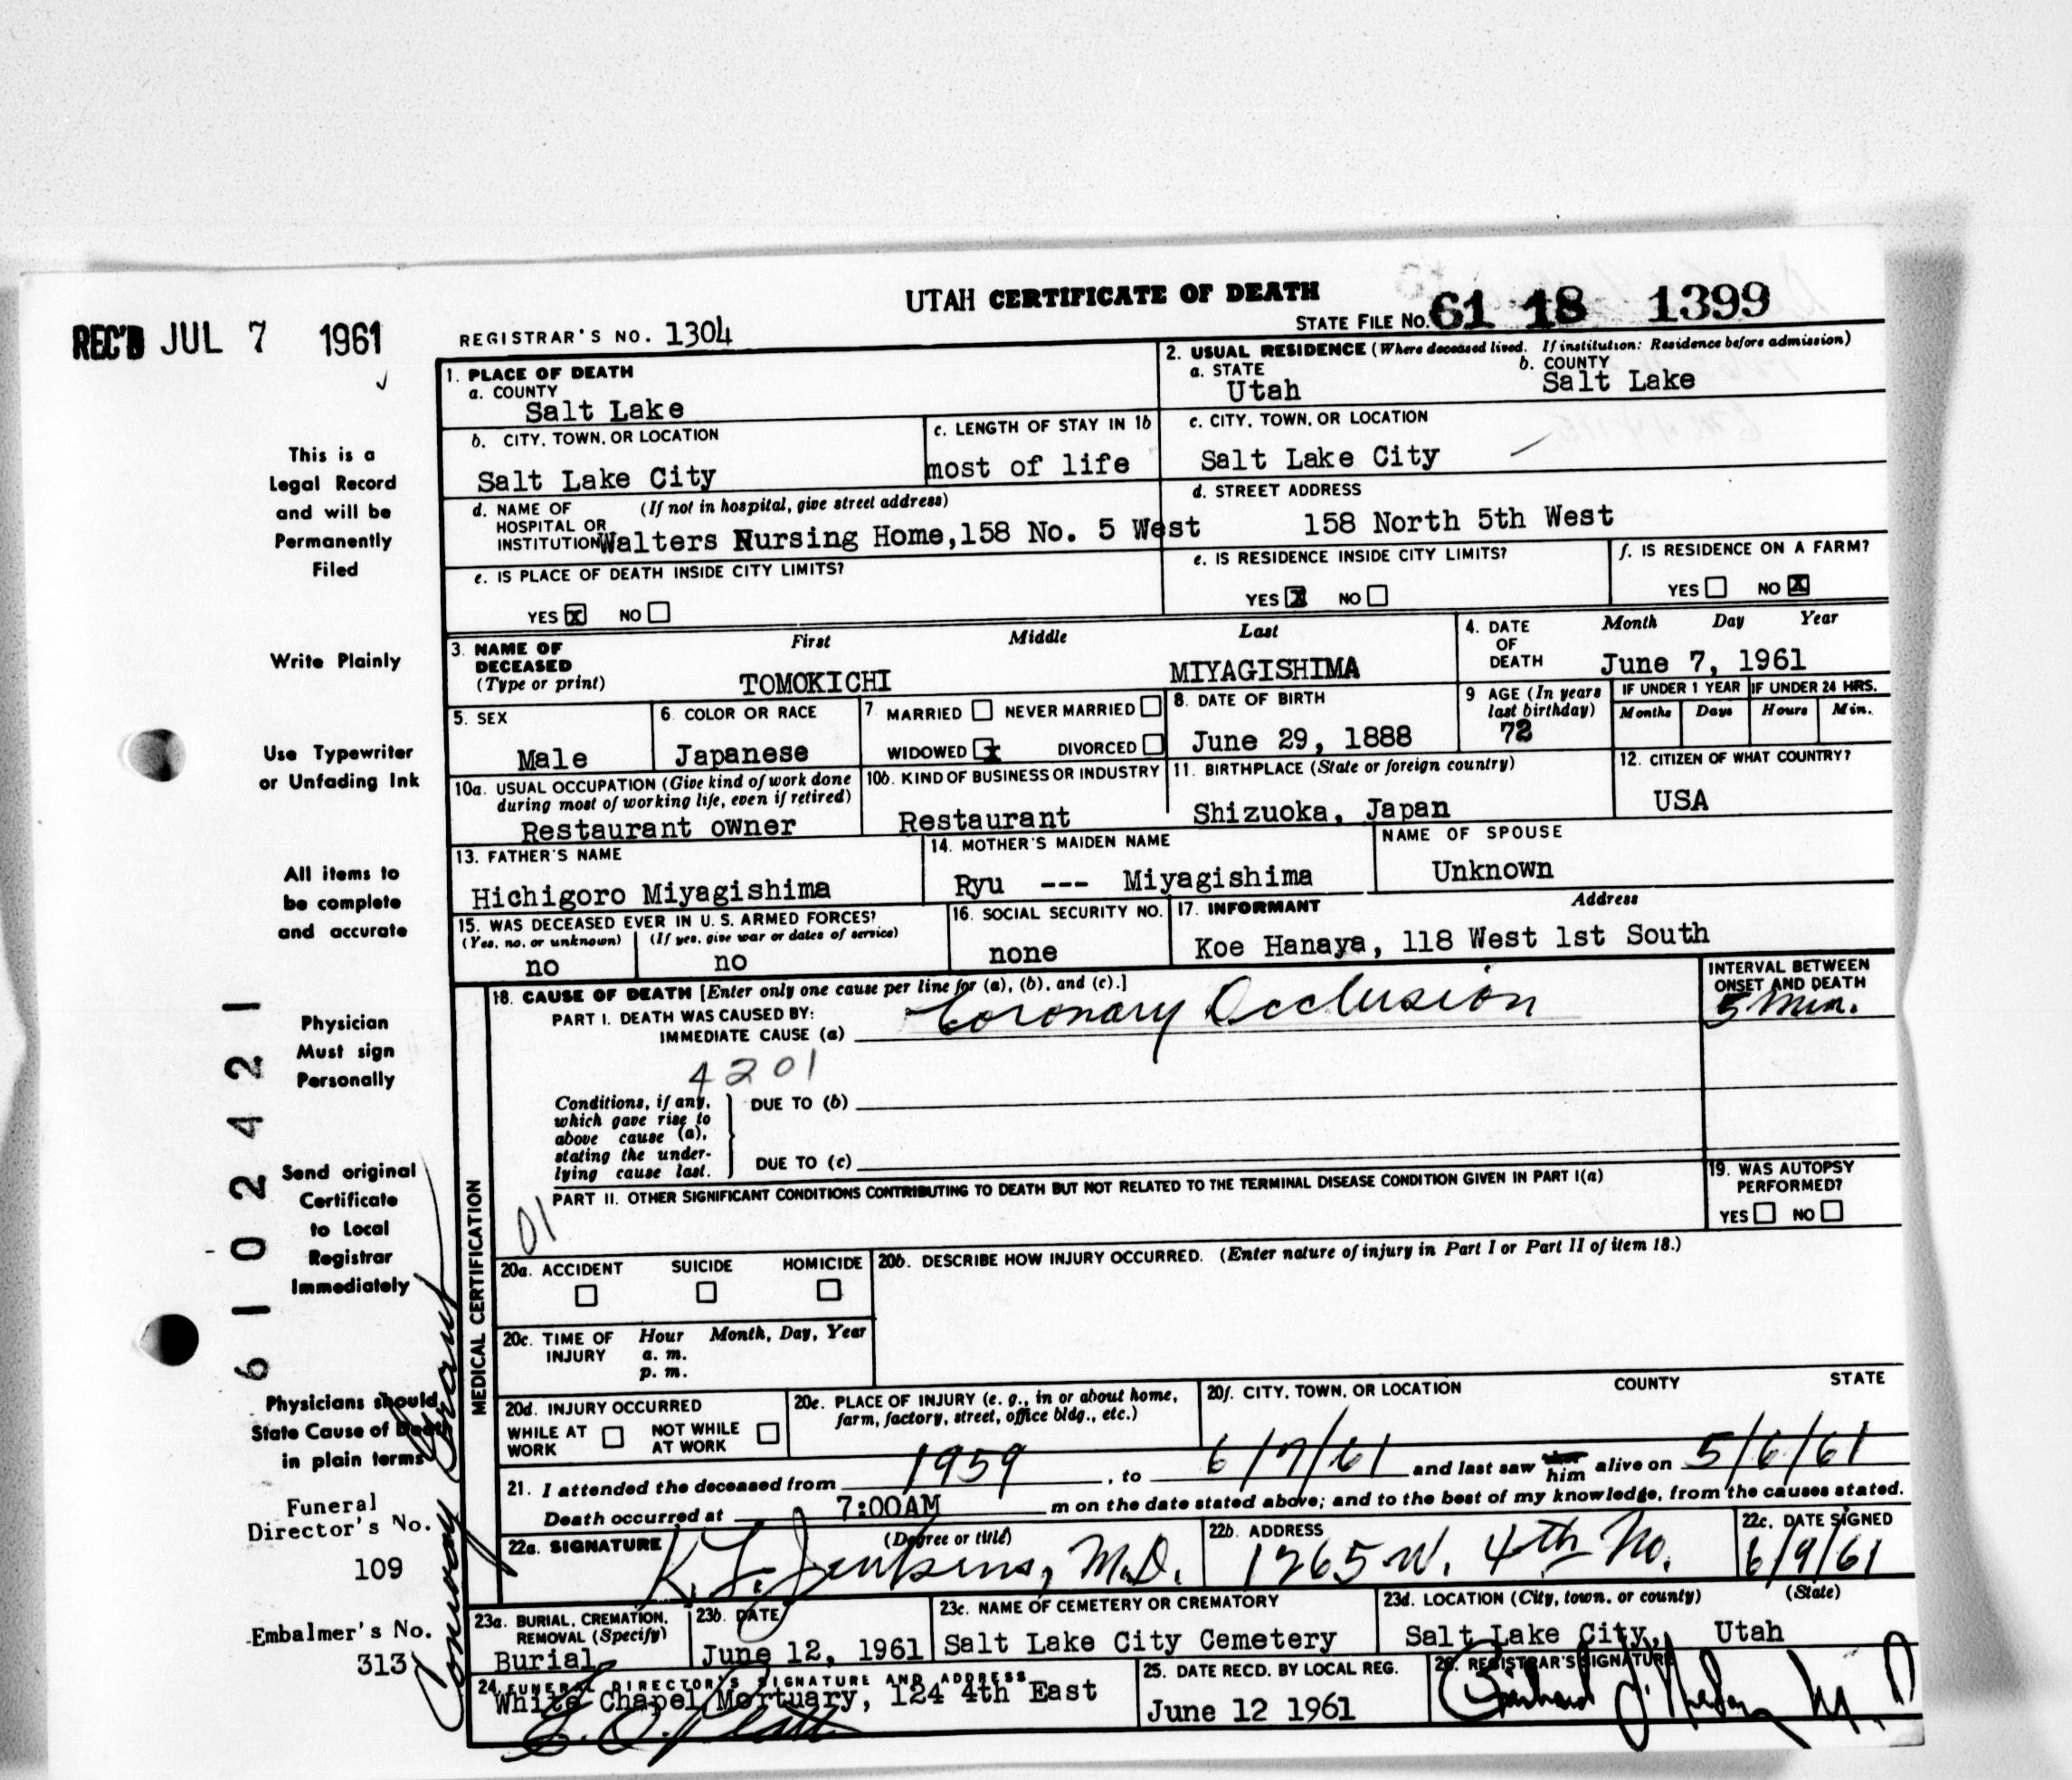 UTAH CERTIFICATE OF DEATH
REC'D JUL 7 1961
REGISTRAR'S NO. 1304
STATE FILE NO. 61 18 1399
This is a
Legal Record
and will be
Permanently
Filed
Write Plainly
Use Typewriter
or Unfading Ink
All items to
be complete
and accurate
Physician
Must sign
Personally
Send original
Certificate
to Local
Registrar
Immediately
Physicians should
State Cause of Death
in plain terms
Funeral
Director's No.
109
Embalmer's No.
313
6102421
1. PLACE OF DEATH
a. COUNTY
Salt Lake
b. CITY, TOWN, OR LOCATION
Salt Lake City
c. LENGTH OF STAY IN 1b
most of life
d. NAME OF HOSPITAL OR INSTITUTION (If not in hospital, give street address)
Walters Nursing Home, 158 No. 5 West
e. IS PLACE OF DEATH INSIDE CITY LIMITS?
YES x NO
2. USUAL RESIDENCE (Where deceased lived. If institution: Residence before admission)
a. STATE
Utah
b. COUNTY
Salt Lake
c. CITY, TOWN, OR LOCATION
Salt Lake City
d. STREET ADDRESS
158 North 5th West
e. IS RESIDENCE INSIDE CITY LIMITS?
YES x NO
f. IS RESIDENCE ON A FARM?
YES NO x
3. NAME OF DECEASED (Type or print)
First Middle Last
TOMOKICHI MIYAGISHIMA
4. DATE OF DEATH
Month Day Year
June 7, 1961
5. SEX
Male
6. COLOR OR RACE
Japanese
7. MARRIED NEVER MARRIED
WIDOWED x DIVORCED
8. DATE OF BIRTH
June 29, 1888
9 AGE (In years last birthday)
72
IF UNDER 1 YEAR
Months Days
IF UNDER 24 HRS.
Hours Min.
10a. USUAL OCCUPATION (Give kind of work done during most of working life, even if retired)
Restaurant owner
10b. KIND OF BUSINESS OR INDUSTRY
Restaurant
11. BIRTHPLACE (State or foreign country)
Shizuoka, Japan
12. CITIZEN OF WHAT COUNTRY?
USA
13. FATHER'S NAME
Hichigoro Miyagishima
14. MOTHER'S MAIDEN NAME
Ryu --- Miyagishima
NAME OF SPOUSE
Unknown
15. WAS DECEASED EVER IN U.S. ARMED FORCES?
(Yes, no, or unknown) (If yes, give war or dates of service)
no no
16. SOCIAL SECURITY NO.
none
17. INFORMANT Address
Koe Hanaya, 118 West 1st South
MEDICAL CERTIFICATION
18. CAUSE OF DEATH [Enter only one cause per line for (a), (b), and (c).]
PART I. DEATH WAS CAUSED BY:
IMMEDIATE CAUSE (a) Coronary Occlusion
INTERVAL BETWEEN ONSET AND DEATH
5 Min.
4201
Conditions, if any, which gave rise to above cause (a), stating the underlying cause last.
DUE TO (b)
DUE TO (c)
PART II. OTHER SIGNIFICANT CONDITIONS CONTRIBUTING TO DEATH BUT NOT RELATED TO THE TERMINAL DISEASE CONDITION GIVEN IN PART I(a)
01
19. WAS AUTOPSY PERFORMED?
YES NO
20a. ACCIDENT SUICIDE HOMICIDE
20b. DESCRIBE HOW INJURY OCCURRED. (Enter nature of injury in Part I or Part II of item 18.)
20c. TIME OF INJURY Hour Month, Day, Year
a. m.
p. m.
20d. INJURY OCCURRED
WHILE AT WORK NOT WHILE AT WORK
20e. PLACE OF INJURY (e. g., in or about home, farm, factory, street, office bldg., etc.)
20f. CITY, TOWN, OR LOCATION COUNTY STATE
21. I attended the deceased from 1959, to 6/7/61 and last saw him alive on 5/6/61
Death occurred at 7:00AM m on the date stated above; and to the best of my knowledge, from the causes stated.
22a. SIGNATURE (Degree or title)
K. L. Jenkins, M.D.
22b. ADDRESS
1265 W. 4th No.
22c. DATE SIGNED
6/9/61
23a. BURIAL, CREMATION, REMOVAL (Specify)
Burial
23b. DATE
June 12, 1961
23c. NAME OF CEMETERY OR CREMATORY
Salt Lake City Cemetery
23d. LOCATION (City, town, or county) (State)
Salt Lake City, Utah
24. FUNERAL DIRECTOR'S SIGNATURE AND ADDRESS
White Chapel Mortuary, 124 4th East
25. DATE RECD. BY LOCAL REG.
June 12 1961
26. REGISTRAR'S SIGNATURE